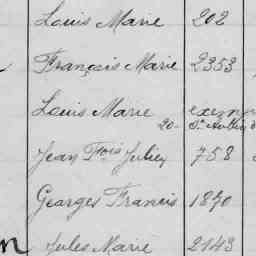 Louis Marie 202
François Marie 2353
Louis Marie
20-
Jean Fois Julien 758
Georges Francis 1870
Jules Marie 2143